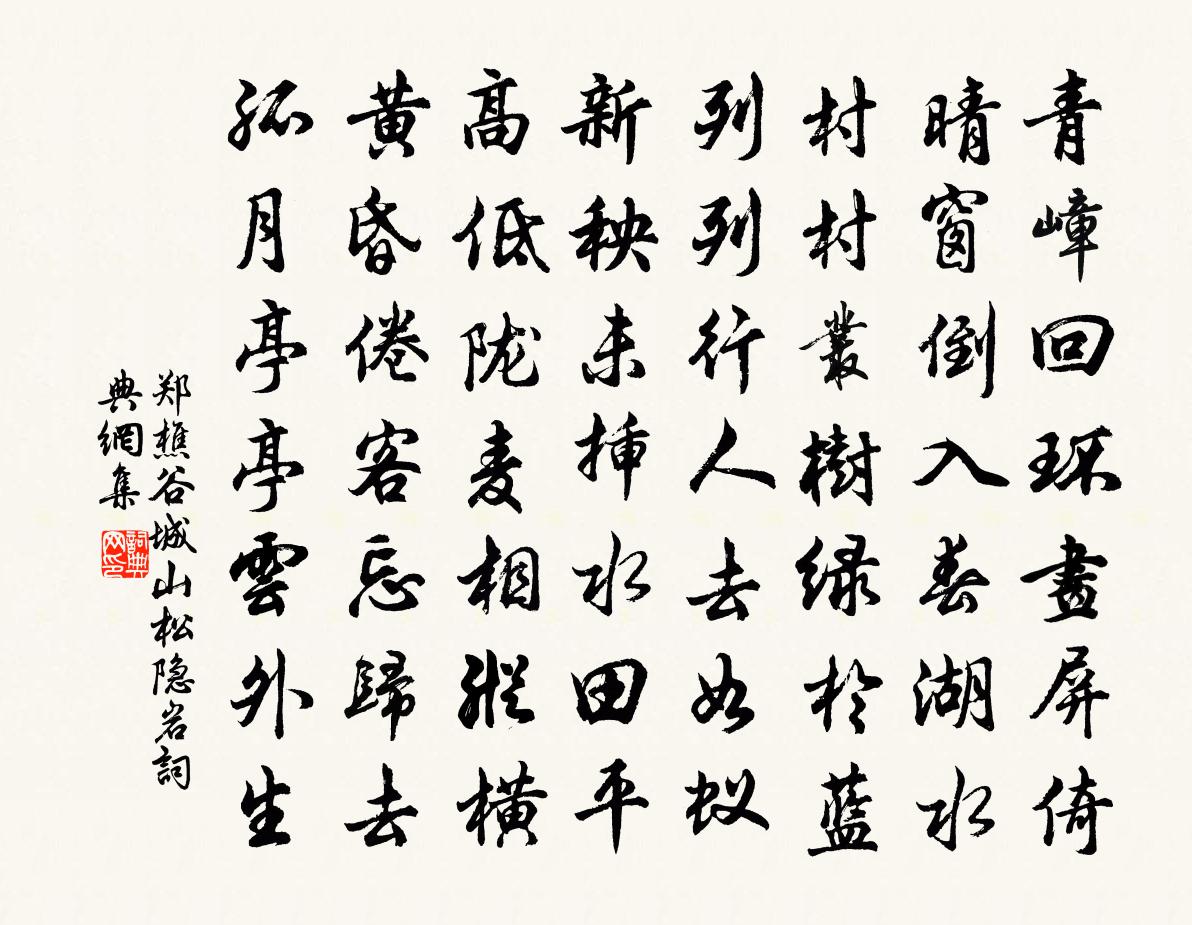 青嶂回环畫屏倚
晴窗倒入春湖水
村村叢樹绿於藍
列列行人去如蚁
新秧未插水田平
高低陇麦相縱橫
黄昏倦客忘歸去
孤月亭亭雲外生
郑樵谷城山松隐岩詞
典網集
詞典
网印